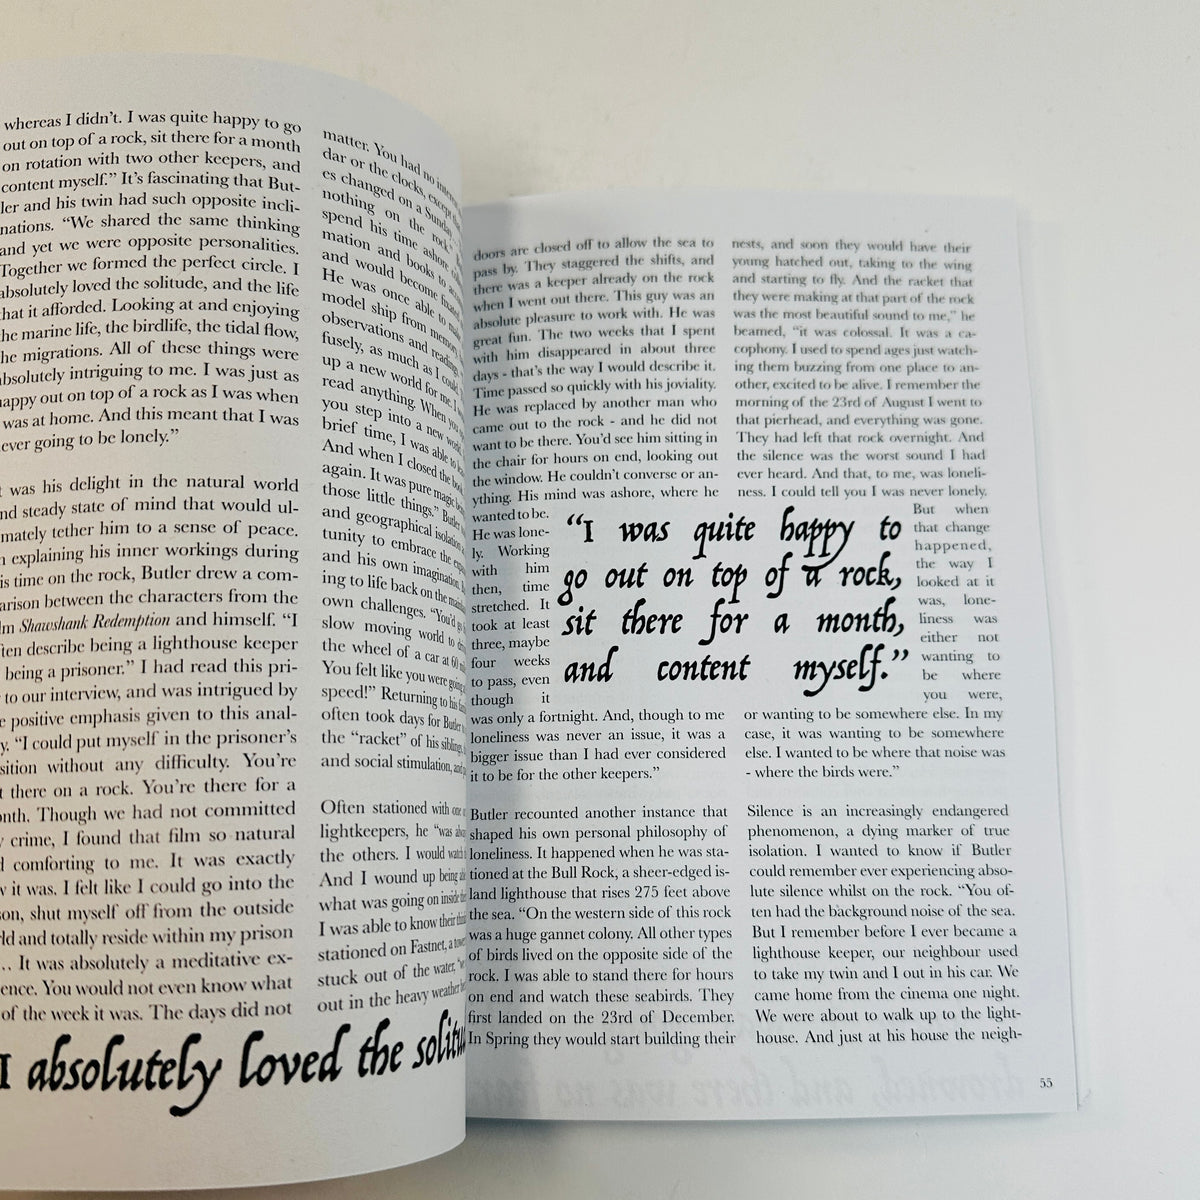 whereas I didn't. I was quite happy to go
out on top of a rock, sit there for a month
on rotation with two other keepers, and
content myself." It's fascinating that But-
ler and his twin had such opposite incli-
nations. "We shared the same thinking
and yet we were opposite personalities.
Together we formed the perfect circle. I
absolutely loved the solitude, and the life
that it afforded. Looking at and enjoying
the marine life, the birdlife, the tidal flow,
the migrations. All of these things were
absolutely intriguing to me. I was just as
happy out on top of a rock as I was when
was at home. And this meant that I was
ever going to be lonely."
was his delight in the natural world
nd steady state of mind that would ul-
mately tether him to a sense of peace.
explaining his inner workings during
is time on the rock, Butler drew a com-
arison between the characters from the
lm Shawshank Redemption and himself. "I
ten describe being a lighthouse keeper
being a prisoner." I had read this pri-
to our interview, and was intrigued by
e positive emphasis given to this anal-
y. "I could put myself in the prisoner's
sition without any difficulty. You're
t there on a rock. You're there for a
onth. Though we had not committed
y crime, I found that film so natural
d comforting to me. It was exactly
w it was. I felt like I could go into the
son, shut myself off from the outside
rld and totally reside within my prison
.. It was absolutely a meditative ex-
ence. You would not even know what
of the week it was. The days did not
matter. You had no
dar or the clocks, except
es changed on a Sunday
nothing on the rock."
spend his time ashore
mation and books to
and would become
He was once able to
model ship from memory,
observations and
fusely, as much as I could
up a new world for me. I
read anything. When you
you step into a new world
brief time, I was able to
And when I closed the book
again. It was pure magic
those little things." Butler
and geographical isolation
tunity to embrace the
and his own imagination,
ing to life back on the
own challenges. "You'd
slow moving world to
the wheel of a car at 60
You felt like you were going
speed!" Returning to his
often took days for Butler
the "racket" of his siblings,
and social stimulation,
Often stationed with
lightkeepers, he "was
the others. I would watch
And I wound up being
what was going on inside
I was able to know their
stationed on Fastnet, a
stuck out of the water,
out in the heavy weather
I absolutely loved the
doors are closed off to allow the sea to
pass by. They staggered the shifts, and
there was a keeper already on the rock
when I went out there. This guy was an
absolute pleasure to work with. He was
great fun. The two weeks that I spent
with him disappeared in about three
days - that's the way I would describe it.
Time passed so quickly with his joviality.
He was replaced by another man who
came out to the rock - and he did not
want to be there. You'd see him sitting in
the chair for hours on end, looking out
the window. He couldn't converse or an-
ything. His mind was ashore, where he
wanted to be.
He was lone-
ly. Working
with him
then, time
stretched. It
took at least
three, maybe
four weeks
to pass, even
though it
was only a fortnight. And, though to me
loneliness was never an issue, it was a
bigger issue than I had ever considered
it to be for the other keepers."
Butler recounted another instance that
shaped his own personal philosophy of
loneliness. It happened when he was sta-
tioned at the Bull Rock, a sheer-edged is-
land lighthouse that rises 275 feet above
the sea. "On the western side of this rock
was a huge gannet colony. All other types
of birds lived on the opposite side of the
rock. I was able to stand there for hours
on end and watch these seabirds. They
first landed on the 23rd of December.
In Spring they would start building their
"I was quite happy to
go out on top of a rock,
sit there for a month,
and content myself."
nests, and soon they would have their
young hatched out, taking to the wing
and starting to fly. And the racket that
they were making at that part of the rock
was the most beautiful sound to me," he
beamed, "it was colossal. It was a ca-
cophony. I used to spend ages just watch-
ing them buzzing from one place to an-
other, excited to be alive. I remember the
morning of the 23rd of August I went to
that pierhead, and everything was gone.
They had left that rock overnight. And
the silence was the worst sound I had
ever heard. And that, to me, was loneli-
ness. I could tell you I was never lonely.
But when
that change
happened,
the way I
looked at it
was, lone-
liness was
either not
wanting to
be where
you were,
or wanting to be somewhere else. In my
case, it was wanting to be somewhere
else. I wanted to be where that noise was
- where the birds were."
Silence is an increasingly endangered
phenomenon, a dying marker of true
isolation. I wanted to know if Butler
could remember ever experiencing abso-
lute silence whilst on the rock. "You of-
ten had the background noise of the sea.
But I remember before I ever became a
lighthouse keeper, our neighbour used
to take my twin and I out in his car. We
came home from the cinema one night.
We were about to walk up to the light-
house. And just at his house the neigh-
55